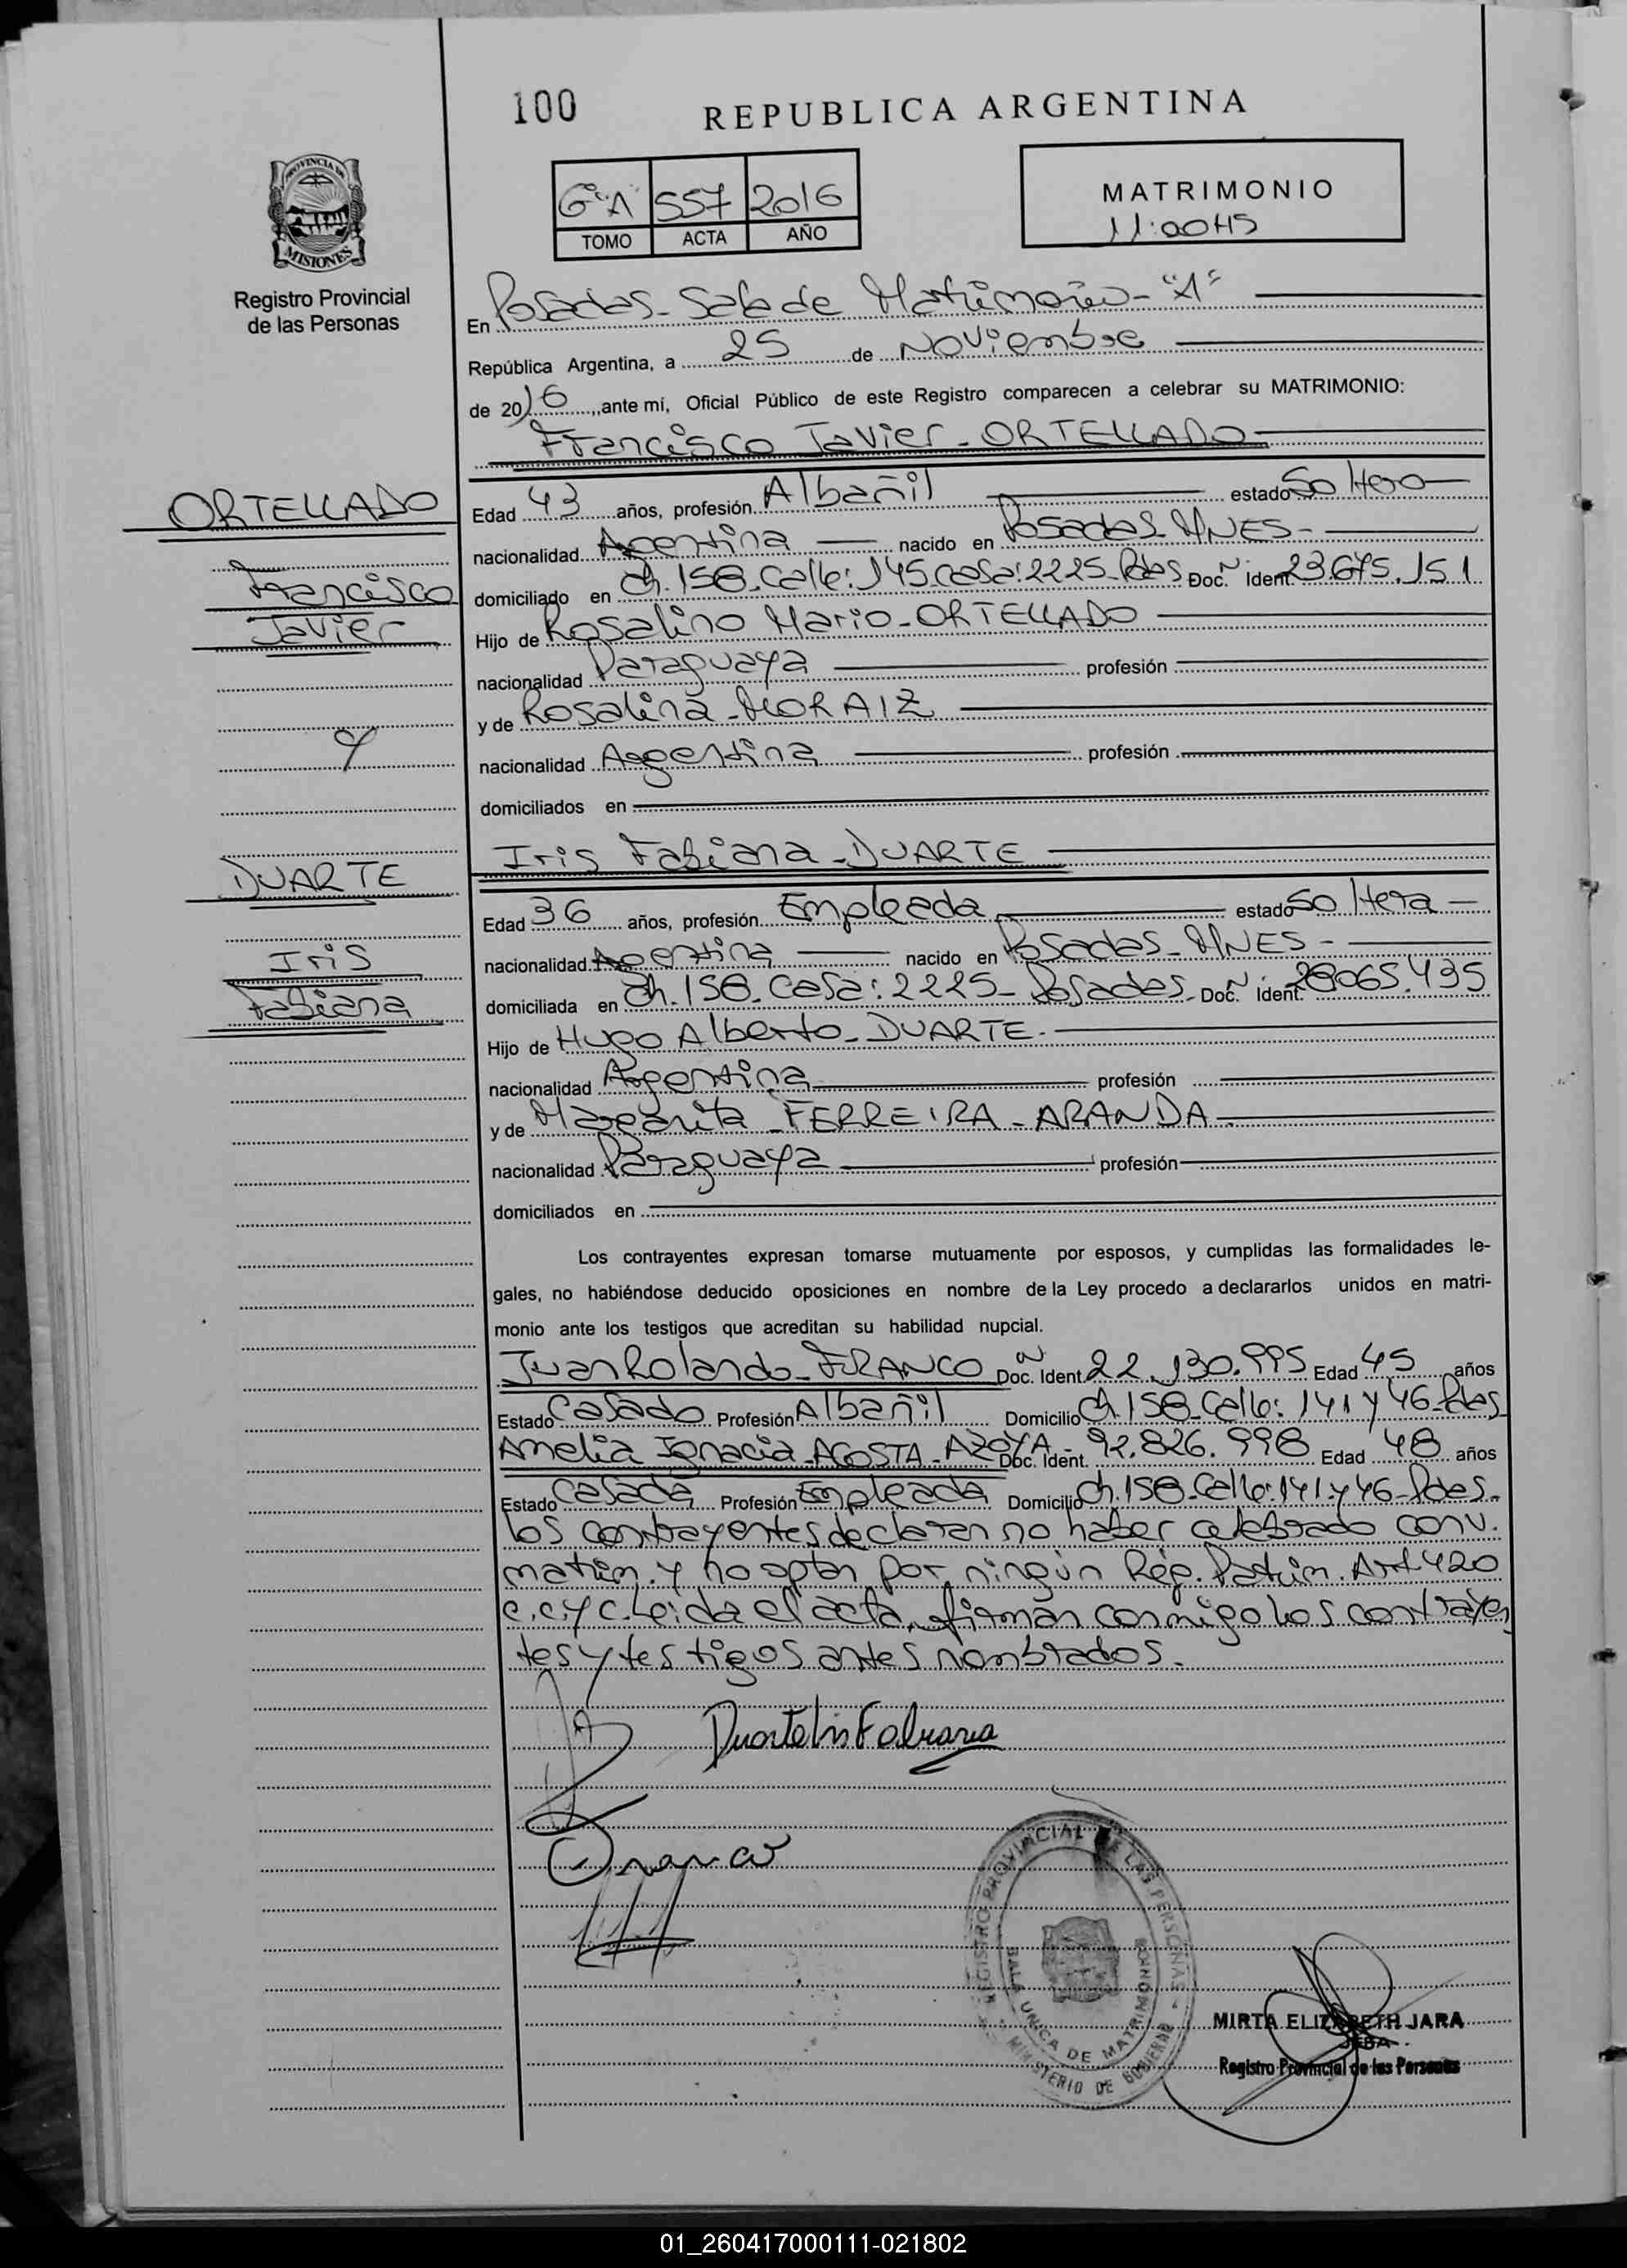 100
REPUBLICA ARGENTINA
6º"A" 557 2016
TOMO ACTA AÑO
MATRIMONIO
11:00HS
PROVINCIA DE
MISIONES
Registro Provincial
de las Personas
En Posadas - Sala de Matrimonio - "A"
República Argentina, a 25 de Noviembre
de 2016, ante mí, Oficial Público de este Registro comparecen a celebrar su MATRIMONIO:
Francisco Javier - ORTELLADO
ORTELLADO
Francisco
Javier
Edad 43 años, profesión Albañil estado Soltero
nacionalidad Argentina nacido en Posadas - MNES -
domiciliado en Ch. 158 - Calle: 145 casa: 2225 - Pdas Doc. Nº Ident 23.675.151
Hijo de Rosalino Mario - ORTELLADO
nacionalidad Paraguaya profesión
y de Rosalina - MORAIZ
y
nacionalidad Argentina profesión
domiciliados en
Iris Fabiana - DUARTE
DUARTE
Iris
Fabiana
Edad 36 años, profesión Empleada estado Soltera
nacionalidad Argentina nacido en Posadas - MNES -
domiciliada en Ch. 158 - Casa: 2225 - Posadas - Doc. Nº Ident. 28065.435
Hijo de Hugo Alberto - DUARTE -
nacionalidad Argentina profesión
y de Margarita - FERREIRA - ARANDA -
nacionalidad Paraguaya profesión
domiciliados en
Los contrayentes expresan tomarse mutuamente por esposos, y cumplidas las formalidades le-
gales, no habiéndose deducido oposiciones en nombre de la Ley procedo a declararlos unidos en matri-
monio ante los testigos que acreditan su habilidad nupcial.
Juan Rolando - FRANCO Doc. Nº Ident. 22.130.995 Edad 45 años
Estado Casado Profesión Albañil Domicilio Ch 158 - Calle: 141 y 46 - Pdas
Amelia Ignacia - AGOSTA - AZOYA - Doc. Ident. 92.826.998 Edad 48 años
Estado Casada Profesión Empleada Domicilio Ch. 158 - Calle: 141 y 46 - Pdas.
Los contrayentes declaran no haber celebrado conv.
matrim. y no optan por ningún Rég. Patrim. Art 420
C.C y C. Leida el acta, firman conmigo los contrayen
tes y testigos antes nombrados.
Duarte Iris Fabiana
REGISTRO PROVINCIAL DE LAS PERSONAS
SALA UNICA DE MATRIMONIO
MINISTERIO DE GOBIERNO
MIRTA ELIZABETH JARA
JEFA
Registro Provincial de las Personas
01_260417000111-021802